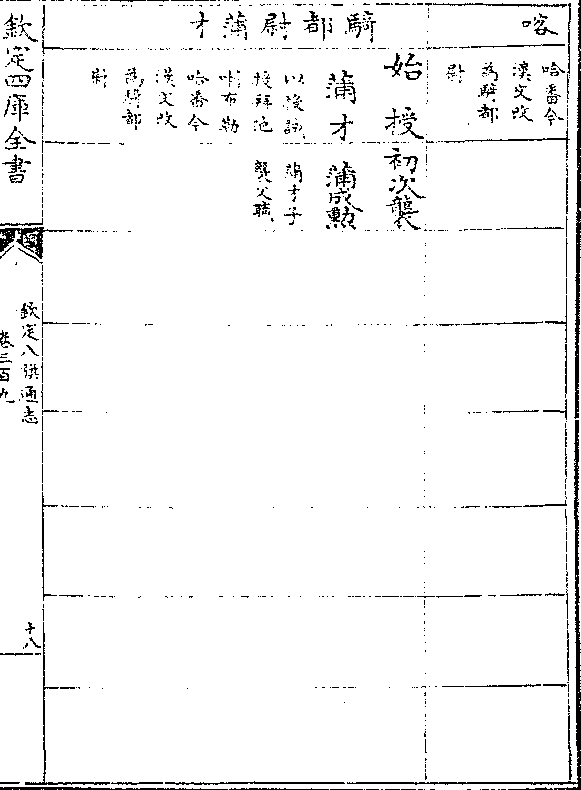 喀
哈番今
漢文改
為騎都
尉
騎都尉蒲才
始授
初次襲
蒲才
以投誠
授拜他
喇布勒
哈番今
漢文改
為騎都
尉
蒲成勳
蒲才子
襲父職
欽定四庫全書
欽定八旗通志
卷三百九
十八